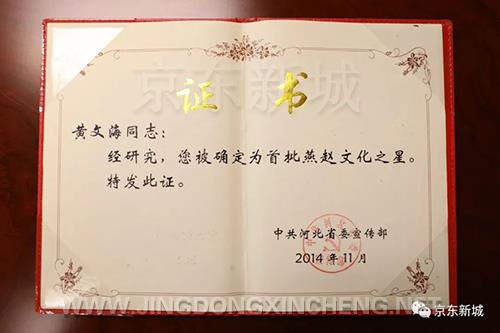 京东新城
证 书
黄文海同志：
经研究，您被确定为首批燕赵文化之星。
特发此证。
中共河北省委宣传部
2014年11月
WWW.JINGDONGXINCHENG.NET
京东新城